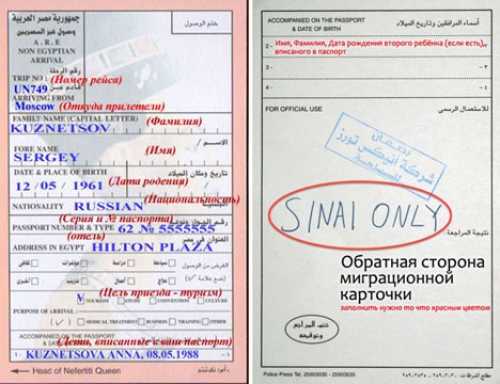 جمهورية مصر العربية
وصول غير المصريين
ختم الوصول
A . R . E
NON EGYPTIAN
ARRIVAL
رقم الرحلة
TRIP NO : (Номер рейса)
UN749
قادم من
ARRIVING FROM
Moscow (Откуда прилетели)
FAMILY NAME (CAPITAL LETTER) (Фамилия)
KUZNETSOV
FORE NAME (Имя) الاســم /
SERGEY
DATE & PLACE OF BIRTH تاريخ ومكان الميلاد
12 /05 / 1961 (Дата родения)
(Национальность)
NATIONALITY RUSSIAN
(Серия и № паспорта)
PASSPORT NUMBER & TYPE 62 № 5555555
(отель) العنوان في مصر
ADDRESS IN EGYPT HILTON PLAZA
الغرض من الوصول
سياحة
دراسة
مؤتمرات
ثقافى
علاج
أعمال
تدريب
أخرى
(Цель приезда - туризм)
V TOURISM STUDY CONVENTION CULTURE
PURPOSE OF ARRIVAL
( ✓ ) MEDICAL TREATMENT BUSINESS TRAINING OTHER
ACCOMPANIED ON THE PASSPORT
(Дети, вписанные в ваш паспорт)
& DATE OF BIRTH
1 - KUZNETSOVA ANNA, 08.05.1988
Head of Nefertiti Queen
ACCOMPANIED ON THE PASSPORT
& DATE OF BIRTH
أسماء المرافقين وتاريخ الميلاد
2 - Имя, Фамилия, Дата рождения второго ребёнка (если есть),
вписаного в паспорт
3 -
4 -
FOR OFFICIAL USE للاستعمال الرسمى
SINAI ONLY
نتيجة المراجعة
Обратная сторона
миграционной
карточки
заполнить нужно то что красным цветом
ختم المراجع
وتوقيعه
Police Press Tel.